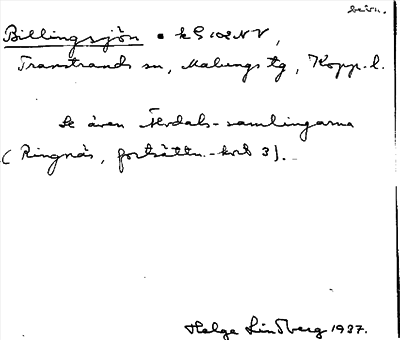 bevn.
Billingsjön • kG 102 NV,
Transtrands sn, Malungs tg, Kopp. l.
Se även Älvdals-samlingarna
(Ringnäs, fortsättn.-kort 3).
Helge Lindberg 1937.